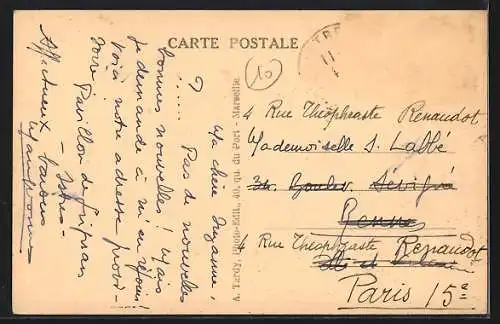 CARTE POSTALE
10
A. TARDY, Photo-Édit., 40, qu. du Port - Marseille
Ma chère Suzanne,
Pas de nouvelles
?......
bonnes nouvelles! Mais
je demande à m'en réjouir!
Voici notre adresse provi-
soire Pavillon de
Istres -
Affectueux baisers
4 Rue Théophraste Renaudot
Mademoiselle S. Labbé
Sévigné
Rennes
4 Rue Théophraste Renaudot
Paris 15e